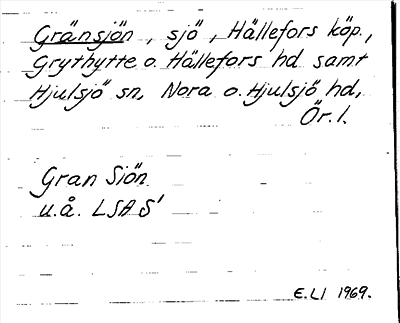 Gränsjön, sjö, Hällefors köp.,
Grythytte o. Hällefors hd samt
Hjulsjö sn, Nora o. Hjulsjö hd,
Ör. l.
Gran Siön
u.å. LSA S'
E.LI 1969.